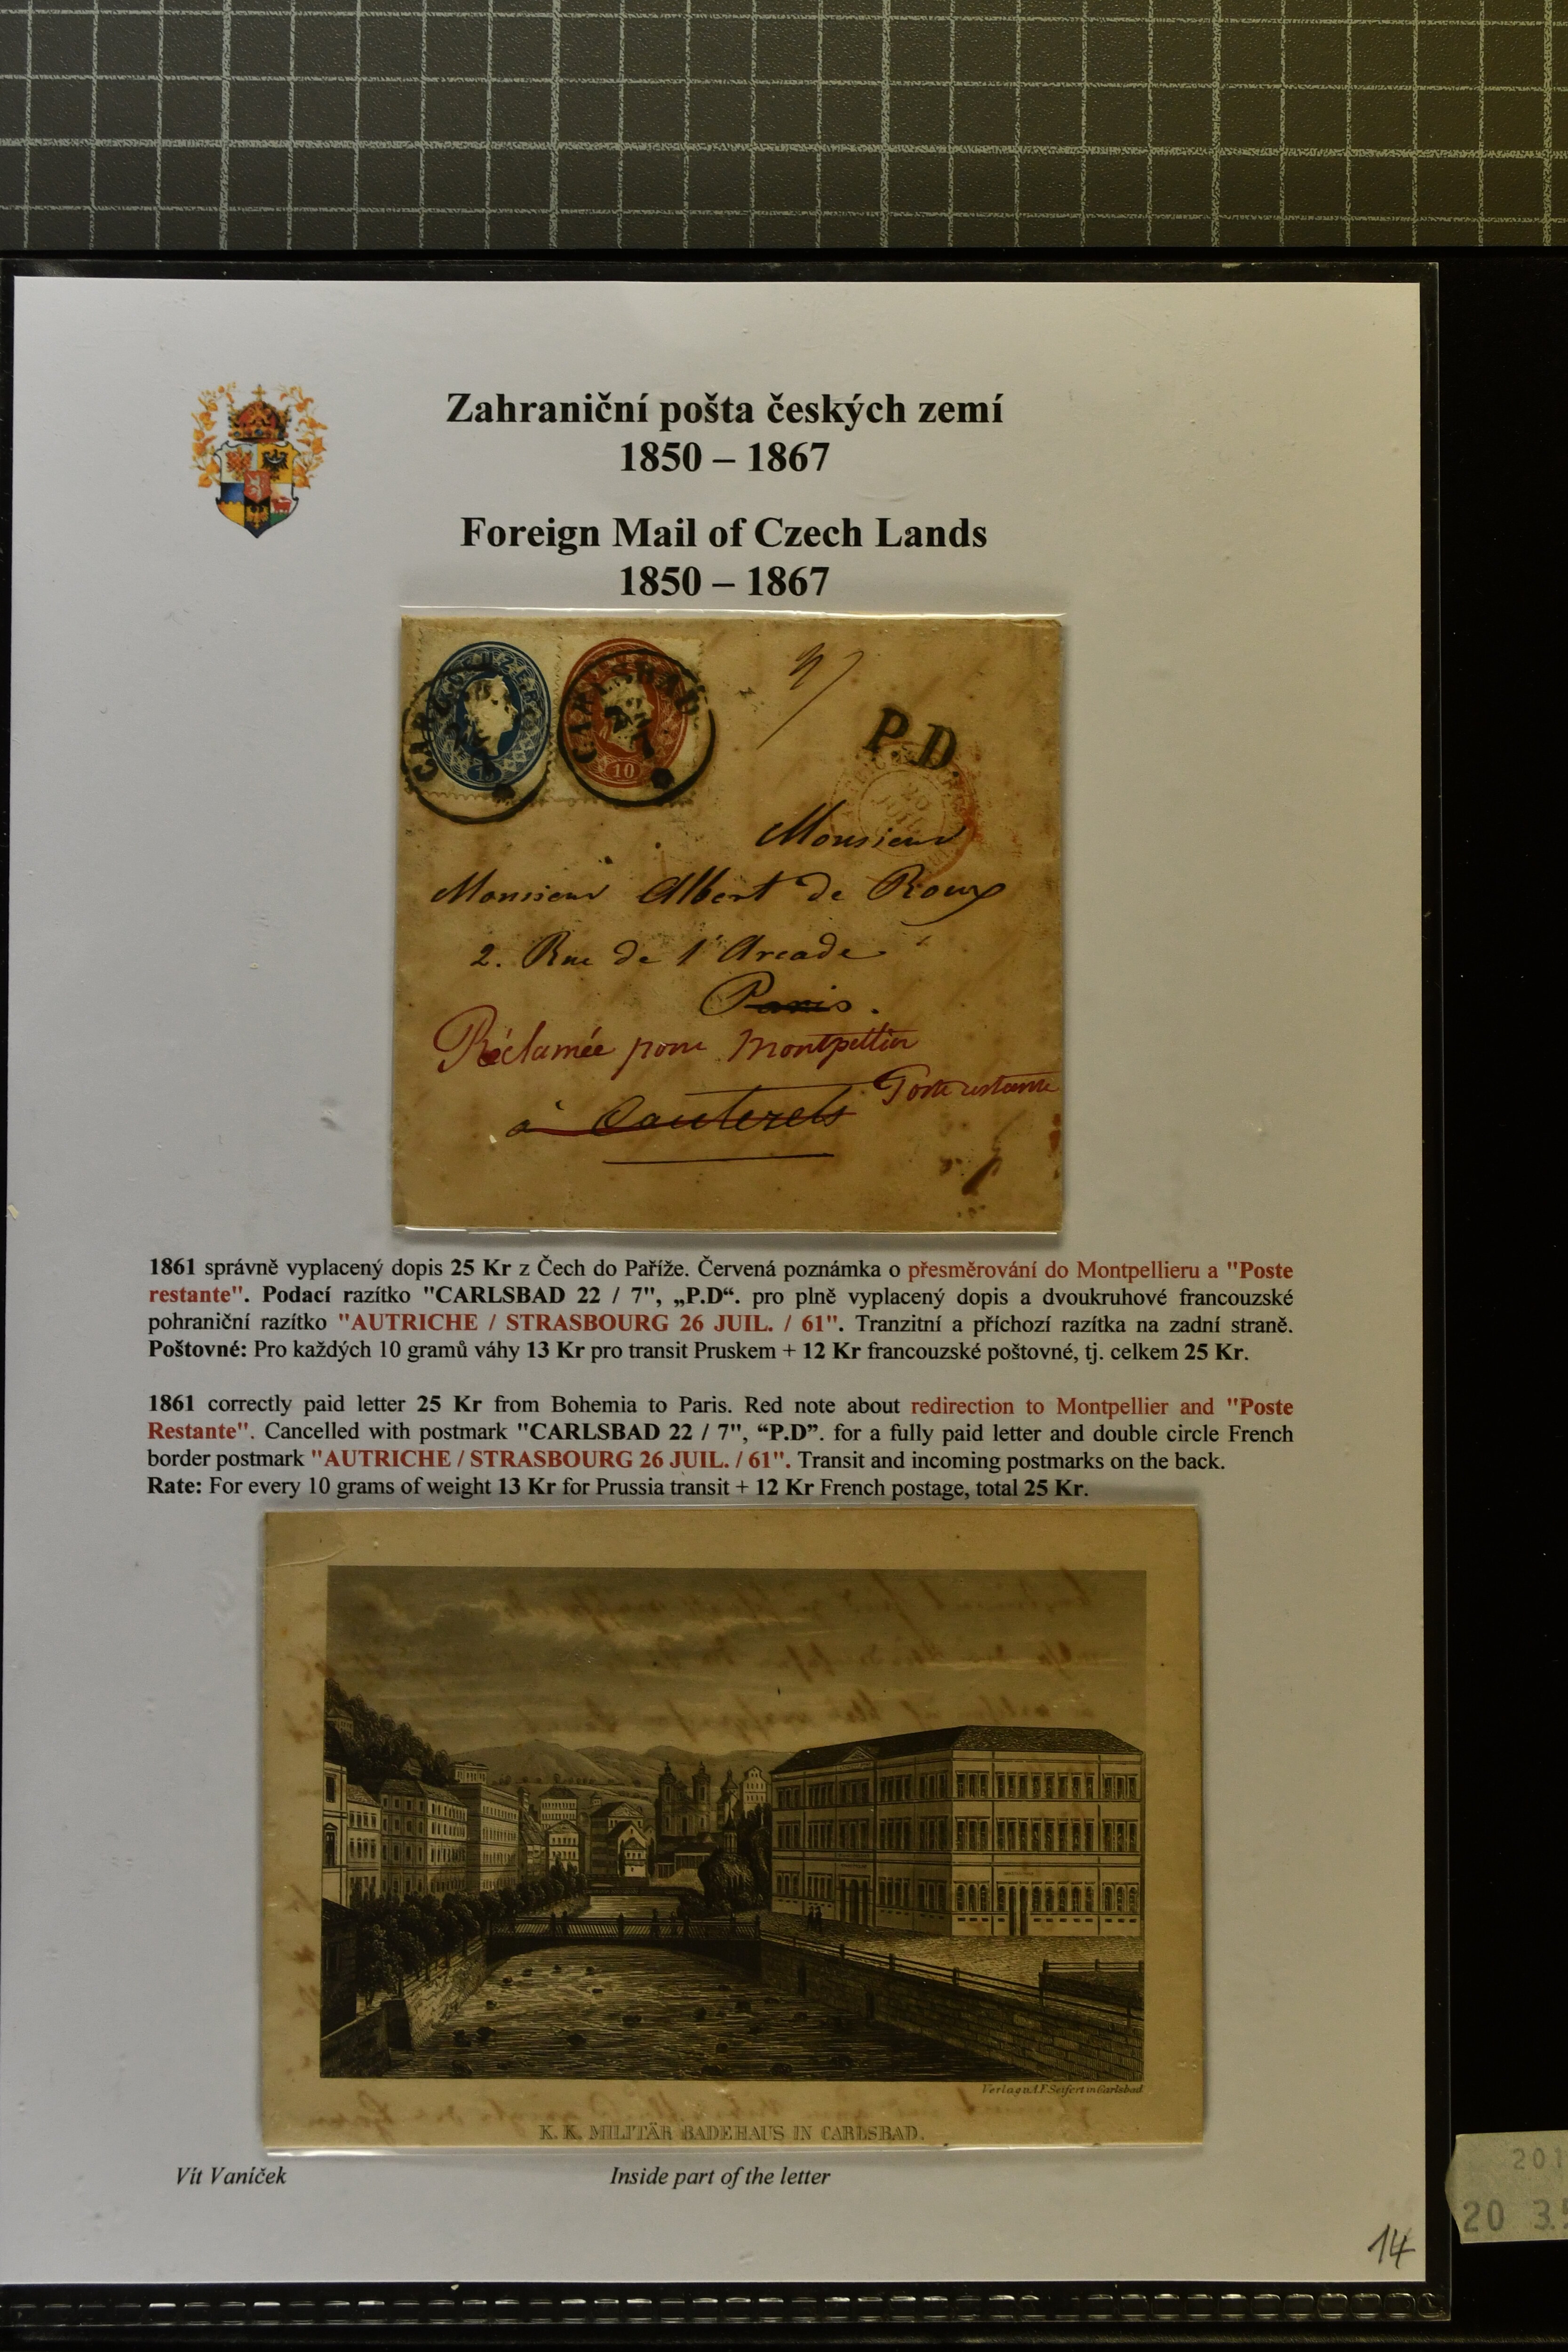 Zahraniční pošta českých zemí
1850 – 1867
Foreign Mail of Czech Lands
1850 – 1867
CARLSBAD
22
7
10
P.D.
Monsieur
Monsieur Albert de Roux
2. Rue de l'Arcade
Paris.
Réclamée pour Montpellier
Poste restante
à Cauterets
1861 správně vyplacený dopis 25 Kr z Čech do Paříže. Červená poznámka o přesměrování do Montpellieru a "Poste
restante". Podací razítko "CARLSBAD 22 / 7", „P.D“. pro plně vyplacený dopis a dvoukruhové francouzské
pohraniční razítko "AUTRICHE / STRASBOURG 26 JUIL. / 61". Tranzitní a příchozí razítka na zadní straně.
Poštovné: Pro každých 10 gramů váhy 13 Kr pro transit Pruskem + 12 Kr francouzské poštovné, tj. celkem 25 Kr.
1861 correctly paid letter 25 Kr from Bohemia to Paris. Red note about redirection to Montpellier and "Poste
Restante". Cancelled with postmark "CARLSBAD 22 / 7", “P.D”. for a fully paid letter and double circle French
border postmark "AUTRICHE / STRASBOURG 26 JUIL. / 61". Transit and incoming postmarks on the back.
Rate: For every 10 grams of weight 13 Kr for Prussia transit + 12 Kr French postage, total 25 Kr.
Verlag v. A.F. Seifert in Carlsbad
K. K. MILITÄR BADEHAUS IN CARLSBAD.
Vít Vaníček
Inside part of the letter
201
20 3.
14